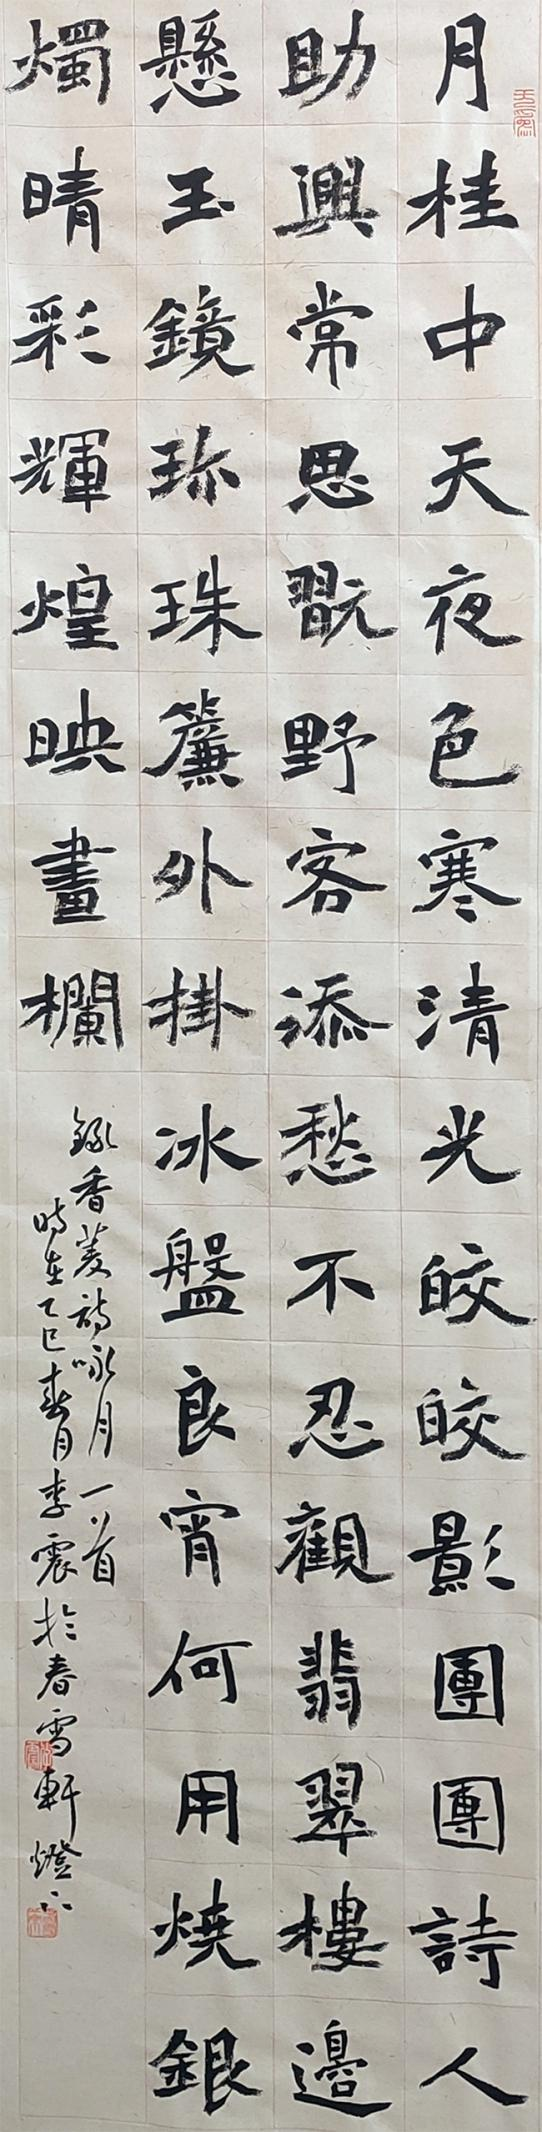 月桂中天夜色寒清光皎皎影團團詩人
助興常思翫野客添愁不忍觀翡翠樓邊
懸玉鏡珎珠簾外掛冰盤良宵何用燒銀
燭晴彩輝煌映畫欄
錄香菱詩咏月一首
時在乙巳春月李震於春雪軒燈下